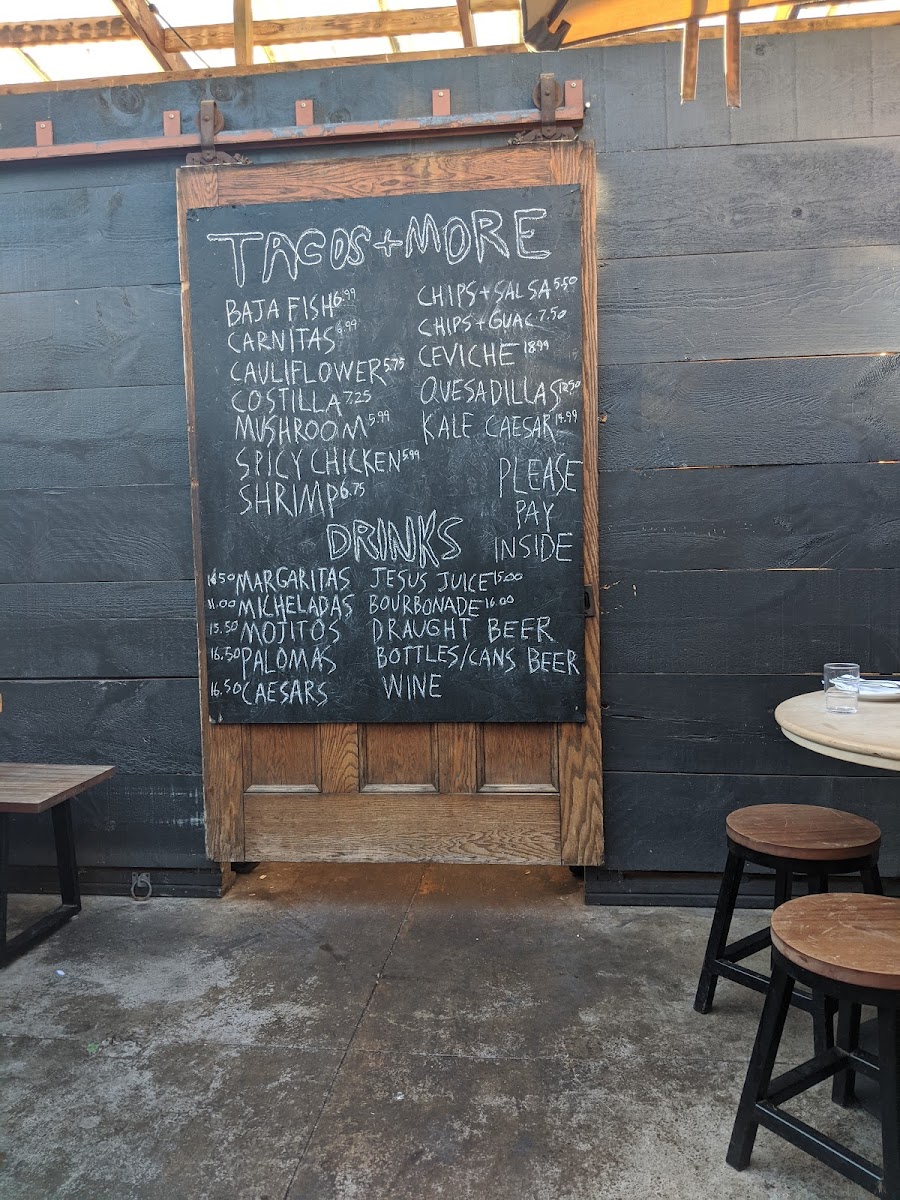 TACOS + MORE
BAJA FISH 6.99
CARNITAS 5.99
CAULIFLOWER 5.75
COSTILLA 7.25
MUSHROOM 5.99
SPICY CHICKEN 5.99
SHRIMP 6.75
CHIPS + SALSA 5.50
CHIPS + GUAC 7.50
CEVICHE 18.99
QUESADILLAS
KALE CAESAR 14.99
PLEASE
PAY
INSIDE
DRINKS
16.50 MARGARITAS
11.00 MICHELADAS
15.50 MOJITOS
16.50 PALOMAS
16.50 CAESARS
JESUS JUICE 15.00
BOURBONADE 16.00
DRAUGHT BEER
BOTTLES/CANS BEER
WINE